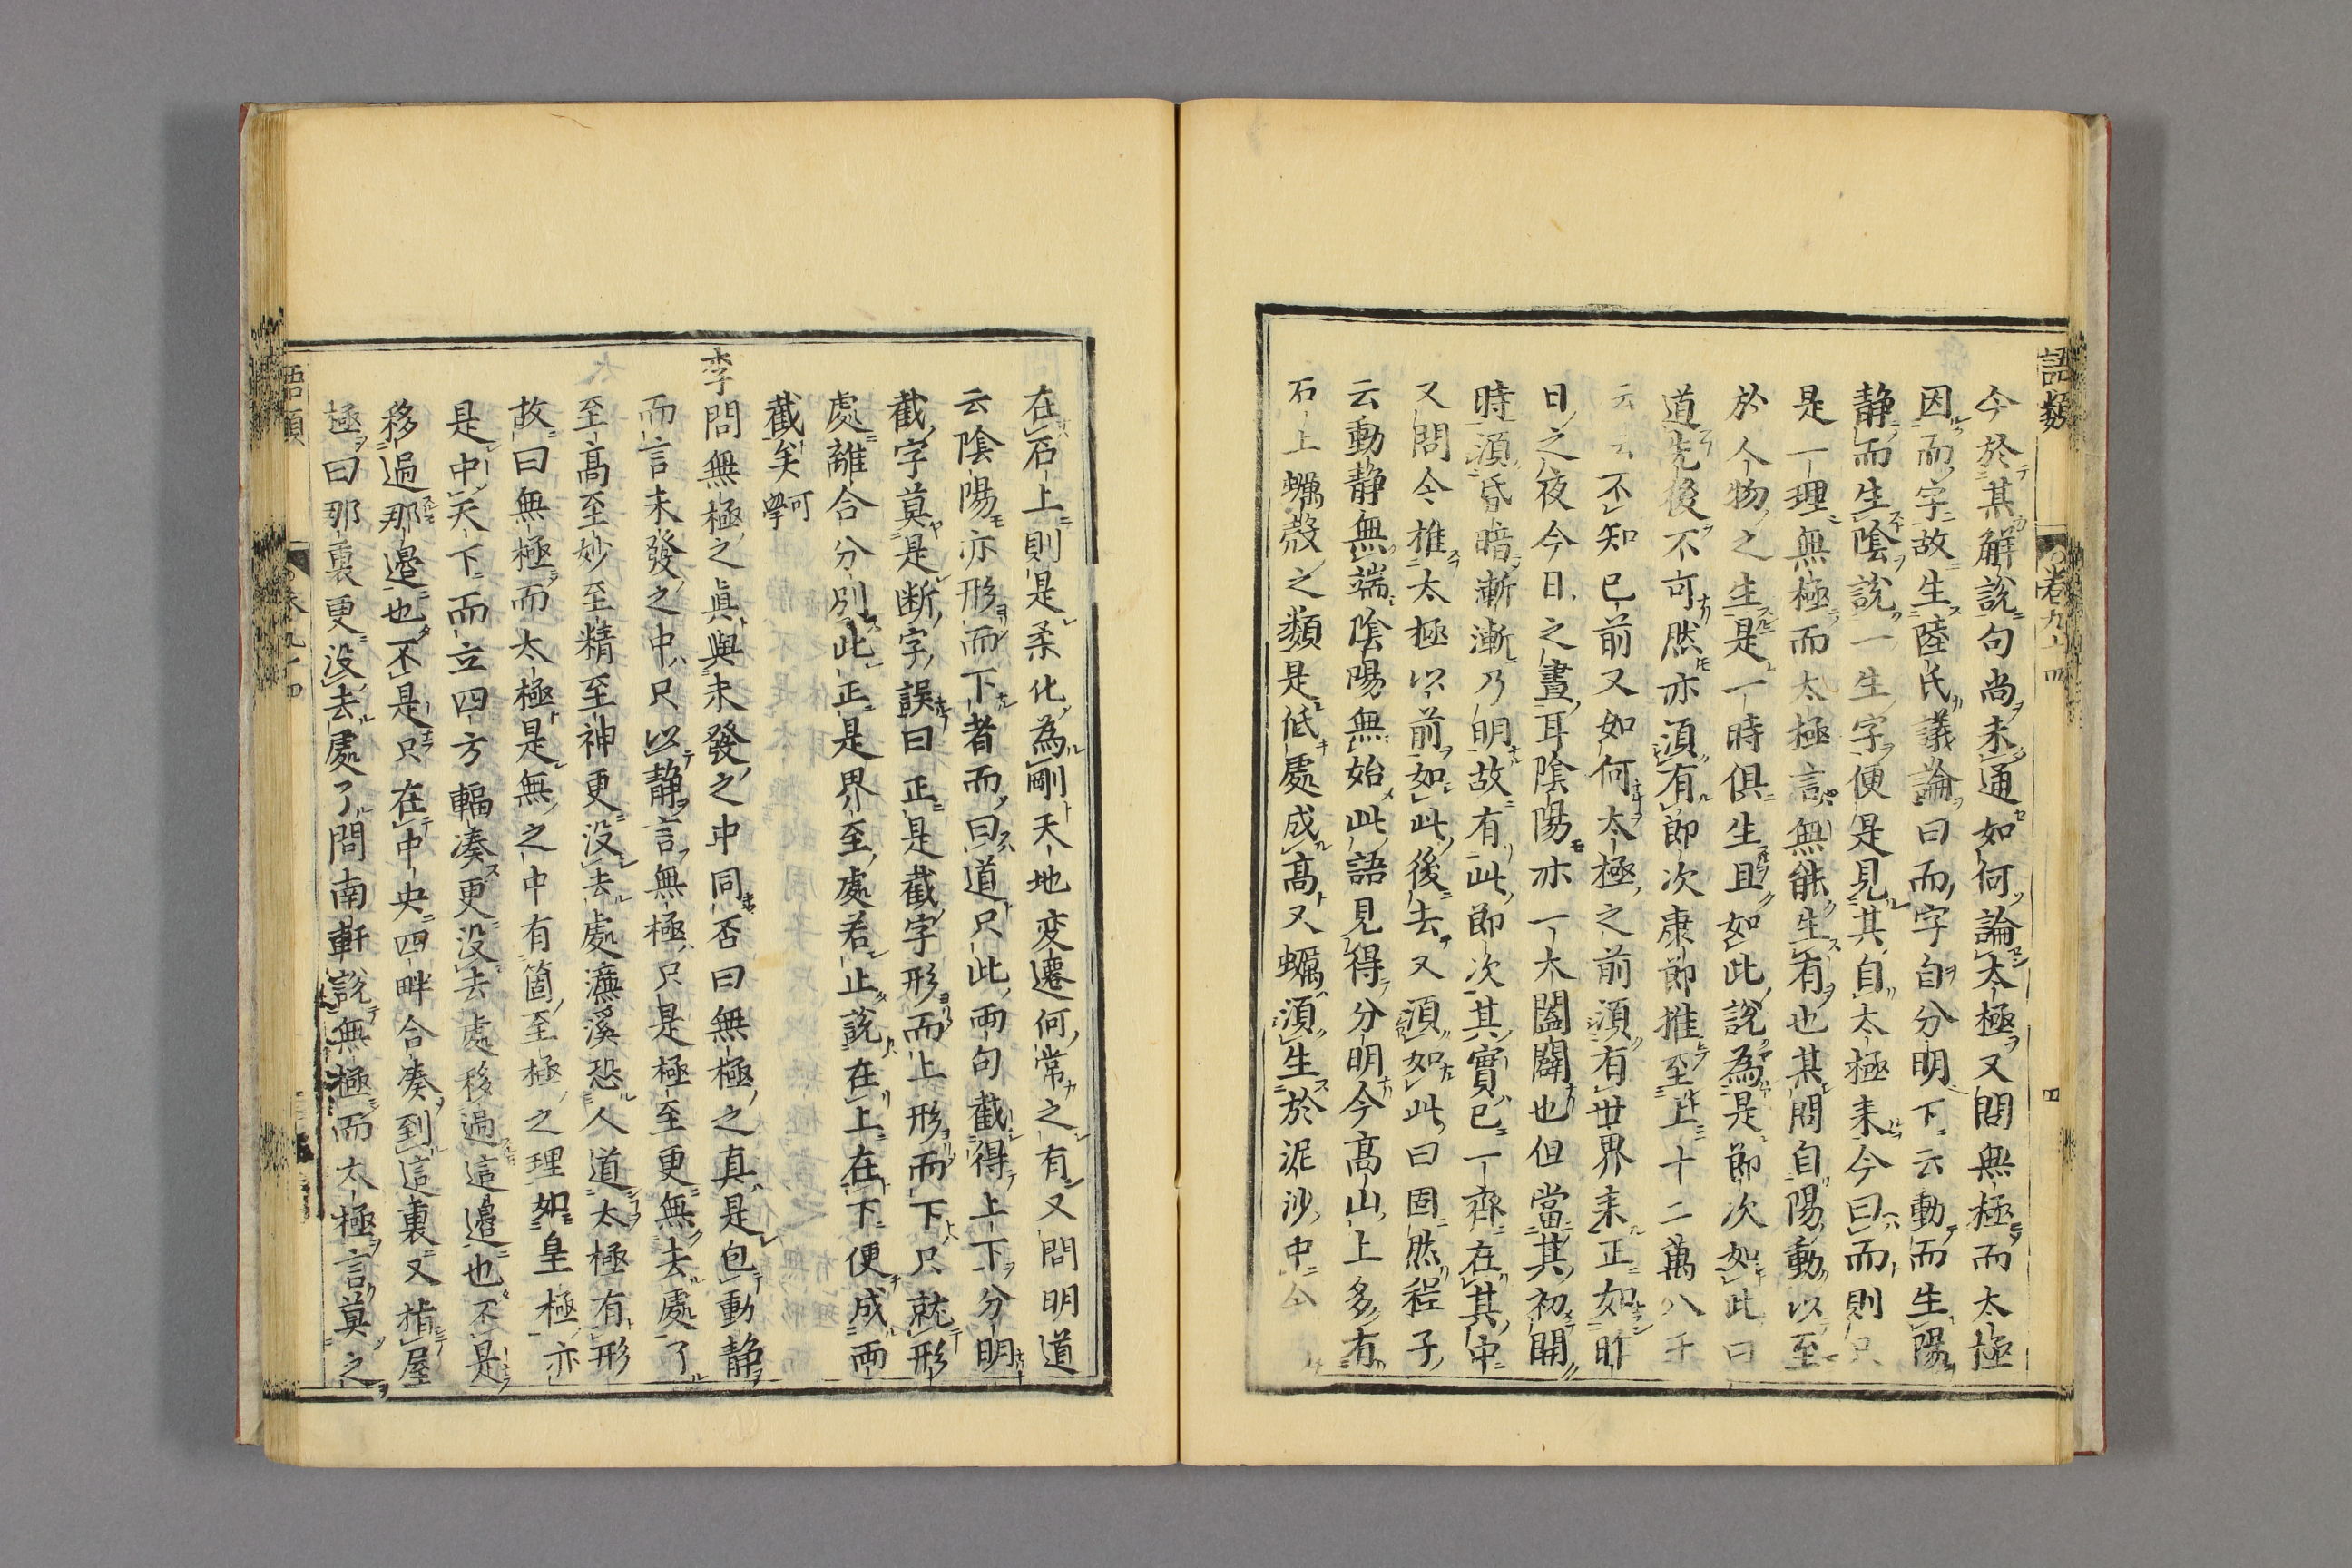 語類
卷九十四
四
今於其解說句尚未通如何論太極又問無極而太極
因而字故生陸氏議論曰而字自分明下云動而生陽
静而生陰說一生字便是見其自太極来今曰而則只
是一理無極而太極言無能生有也某問自陽動以至
於人物之生是一時俱生且如此說為是節次如此曰
道先後不可然亦須有節次康節推至上十二萬八千
云云不知已前又如何太極之前須有世界来正如昨
日之夜今日之晝耳陰陽亦一大闔闢也但當其初開
時須昏暗漸漸乃明故有此節次其實已一齊在其中
又問今推太極以前如此後去又須如此曰固然程子
云動静無端陰陽無始此語見得分明今高山上多有
石上蠣殼之類是低處成高又蠣須生於泥沙中今
在石上則是柔化為剛天地変遷何常之有又問明道
云陰陽亦形而下者而曰道只此両句截得上下分明
截字莫是断字誤曰正是截字形而上形而下只就形
處離合分別此正是界至處若止說在上在下便成両
截矣
可學
李問無極之眞與未發之中同否曰無極之真是包動静
而言未發之中只以静言無極只是極至更無去處了
至高至妙至精至神更没去處濂溪恐人道太極有形
故曰無極而太極是無之中有箇至極之理如皇極亦
是中天下而立四方輻凑更没去處移過這邉也不是
移過那邉也不是只在中央四畔合凑到這裏又指屋
極曰那裏更没去處了問南軒說無極而太極言莫之
語類